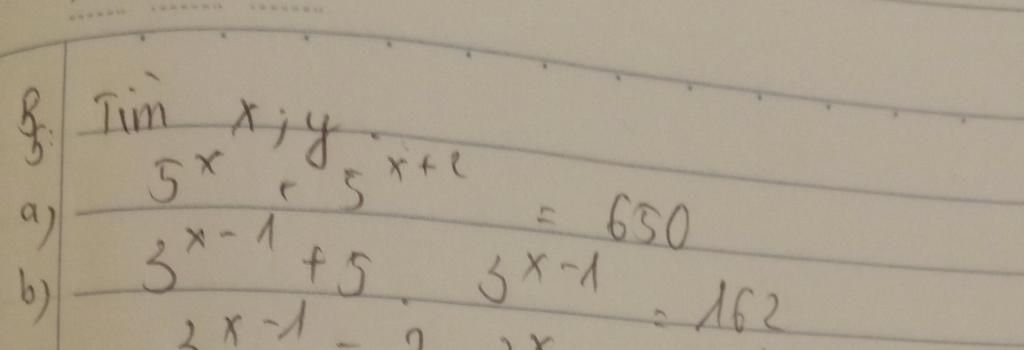 B5: Tìm x; y.
a) 5^x + 5^{x+2} = 650
b) 3^{x-1} + 5 . 3^{x-1} = 162